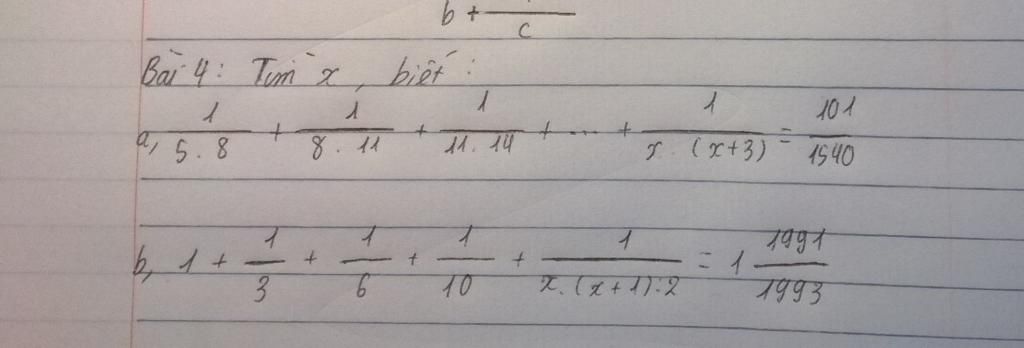 b + ― / c
Bài 4: Tìm x, biết:
a, 1/5.8 + 1/8.11 + 1/11.14 + ... + 1/x.(x+3) = 101/1540
b, 1 + 1/3 + 1/6 + 1/10 + 1/x.(x+1):2 = 1 1991/1993